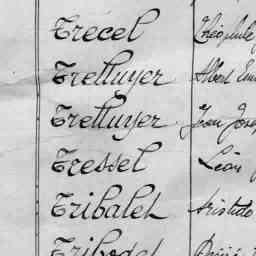 Trecel Théophile
Tretluyer Albert Em
Tretluyer Jean Jose
Tressel Léon
Tribalet Aristide
Tribodet Désiré